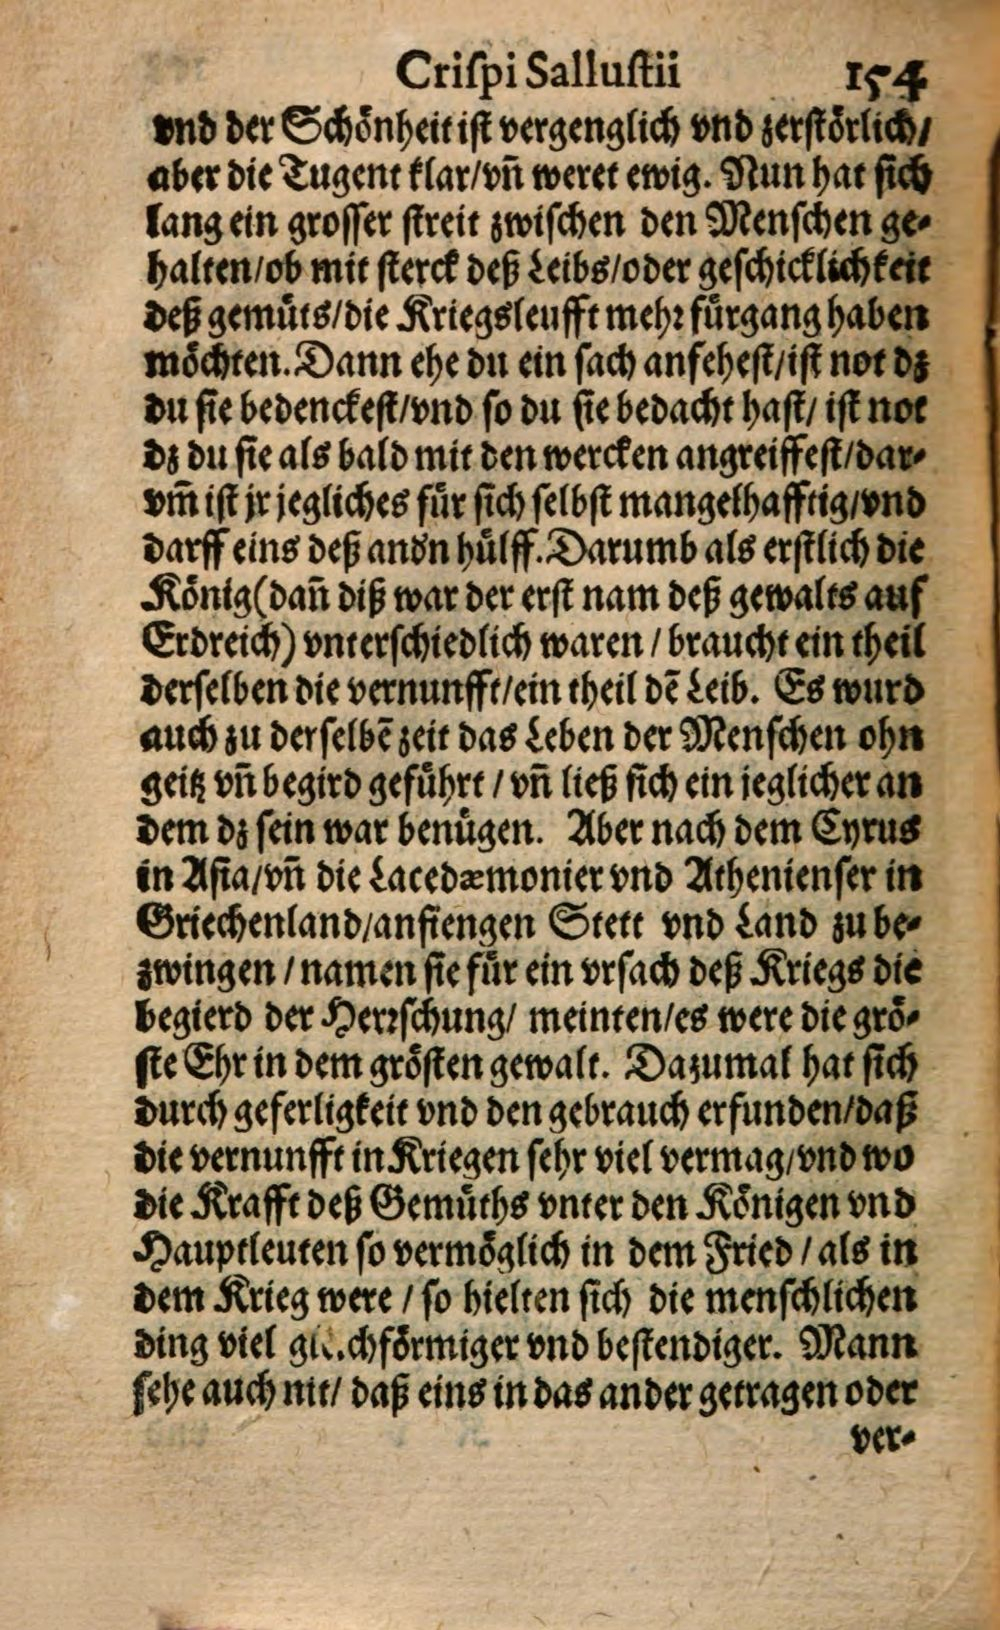 Criſpi Salluſtii 154
vnd der Schönheit iſt vergenglich vnd zerſtörlich/
aber die Tugent klar/vñ weret ewig. Nun hat ſich
lang ein groſſer ſtreit zwiſchen den Menſchen ge⸗
halten/ob mit ſterck deß Leibs/oder geſchicklichkeit
deß gemüts/die Kriegsleufft mehꝛ fürgang haben
möchten. Dann ehe du ein ſach anfeheſt/iſt not dz
du ſie bedenckeſt/vnd ſo du ſie bedacht haſt/ iſt not
dz du ſie als bald mit den wercken angreiffeſt/dar⸗
vm̃ iſt jr jegliches für ſich ſelbſt mangelhafftig/vnd
darff eins deß andn hülff. Darumb als erſtlich die
König(dañ diß war der erſt nam deß gewalts auf
Erdreich) vnterſchiedlich waren / braucht ein theil
derſelben die vernunfft/ein theil dẽ Leib. Es wurd
auch zu derſelbẽ zeit das Leben der Menſchen ohn
geitz vñ begird geführt / vñ ließ ſich ein jeglicher an
dem dz ſein war benügen. Aber nach dem Cyrus
in Aſia/vñ die Lacedæmonier vnd Athenienſer in
Griechenland/anfiengen Stett vnd Land zu be⸗
zwingen / namen ſie für ein vrſach deß Kriegs die
begierd der Herꝛſchung/ meinten/es were die grö⸗
ſte Ehr in dem gröſten gewalt. Dazumal hat ſich
durch geferligkeit vnd den gebrauch erfunden/daß
die vernunfft in Kriegen ſehr viel vermag/vnd wo
die Krafft deß Gemüths vnter den Königen vnd
Hauptleuten ſo vermöglich in dem Fried / als in
dem Krieg were / ſo hielten ſich die menſchlichen
ding viel vnd beſtendiger. Mann
ſehe auch nit/ daß eins in das ander getragen oder
ver⸗